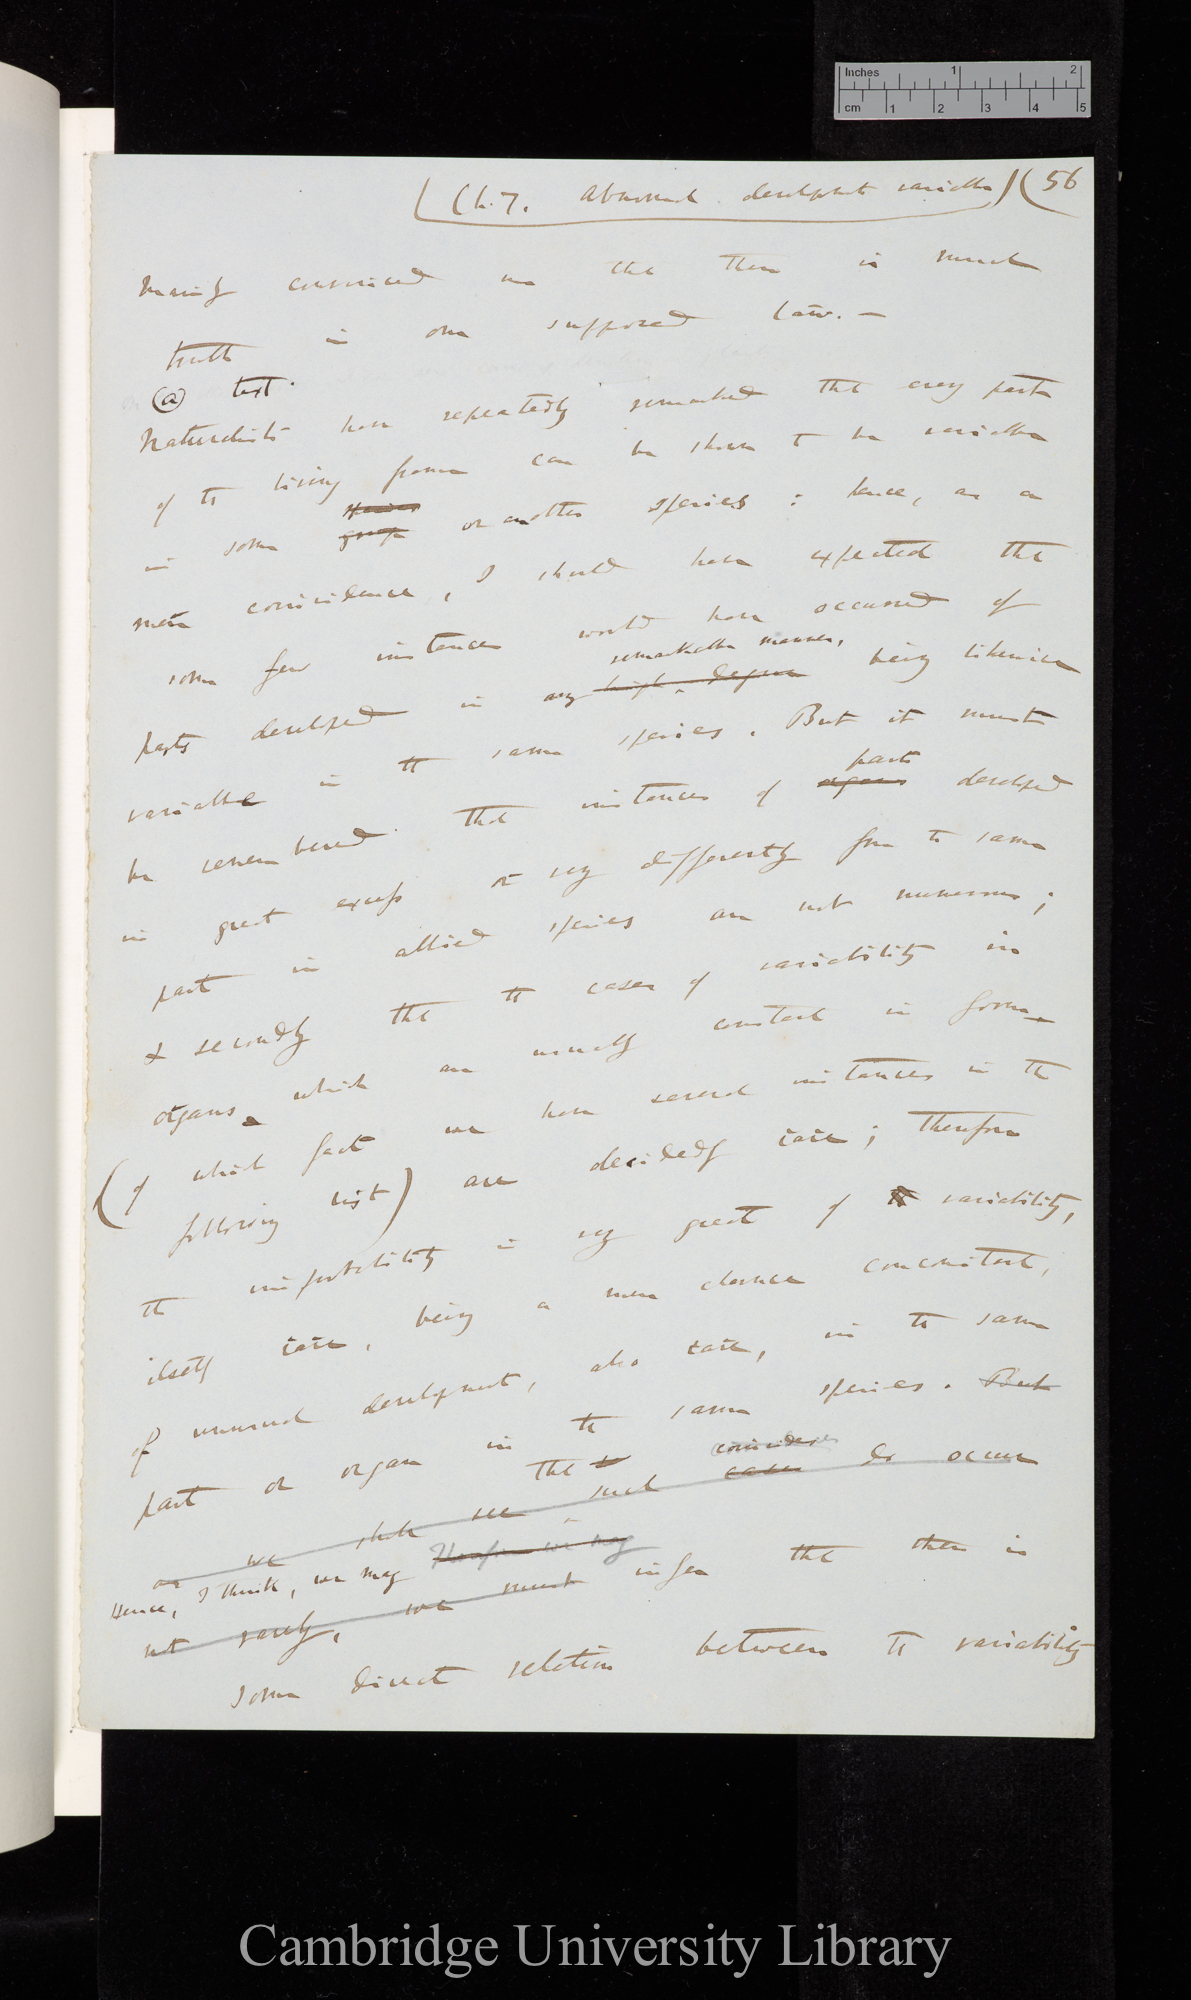 Inches 1 2
cm 1 2 3 4 5
(Ch. 7. Abnormal development variable) (56
having convinced me that there is much
truth in our supposed law. —
(a) text
Naturalists have repeatedly remarked that every part
of the living frame can be shown to be variable
species
in some group or another species : hence, as a
mere coincidence, I should have expected that
some few instances would have occurred of
remarkable manner,
parts developed in any high degree being likewise
variable in the same species. But it must
parts
be remembered that instances of organs developed
in great excess or very differently from the same
part in allied species are not numerous;
& secondly that the cases of variability in
organs which are usually constant in form
(of which fact we have several instances in the
following list) are decidedly rare; therefore
the improbability is very great of the variability,
itself rare, being a mere chance concomitant,
of unusual development, also rare, in the same
part or organ in the same species. But
coincidences
as we shall see that such cases do occur
Hence, I think, we may Therefore we may
not rarely, we must infer that there is
some direct relation between the variability
Cambridge University Library